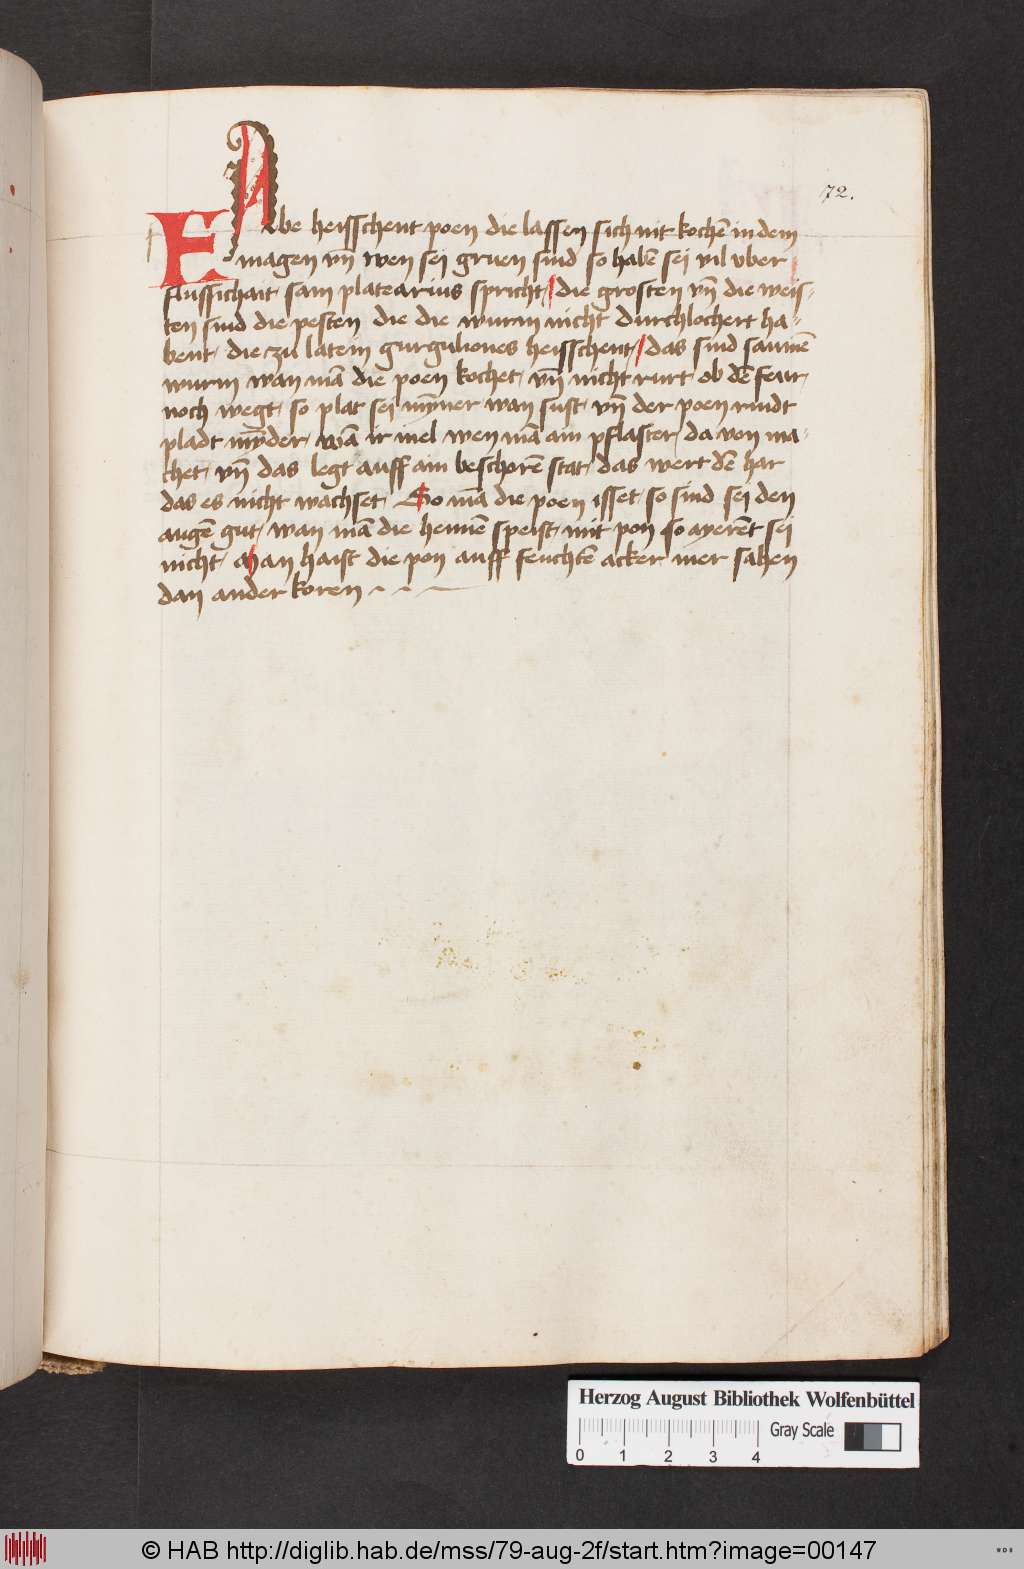 72.
FAbe heisschent poen die lassen sich nit kochē in dem
magen vn̄ wen sei gruen sind so habē sei vil vber
flussichait sam platearius spricht / die grosten vn̄ die weis-
ten sind die pesten die die wurm nicht durchlochert ha-
bent die zu latein gurguliones heisschent / das sind samē
wurm wan mā die poen kochet vn̄ nicht rurt ob dē feur
noch wegt so plat sei mȳner wan sust vn̄ der poen rindt
pladt mȳder wā ir mel wen mā ain pflaster da von ma-
chet vn̄ das legt auff ain beschorē stat das wert dē har
das es nicht wachset So mā die poen isset so sind sei den
augē gut wan mā die hennē speist mit pon so ayerēt sei
nicht Man haist die pon auff feuchtē acker mer sahen
dan ander koren
Herzog August Bibliothek Wolfenbüttel
Gray Scale
0 1 2 3 4
© HAB http://diglib.hab.de/mss/79-aug-2f/start.htm?image=00147